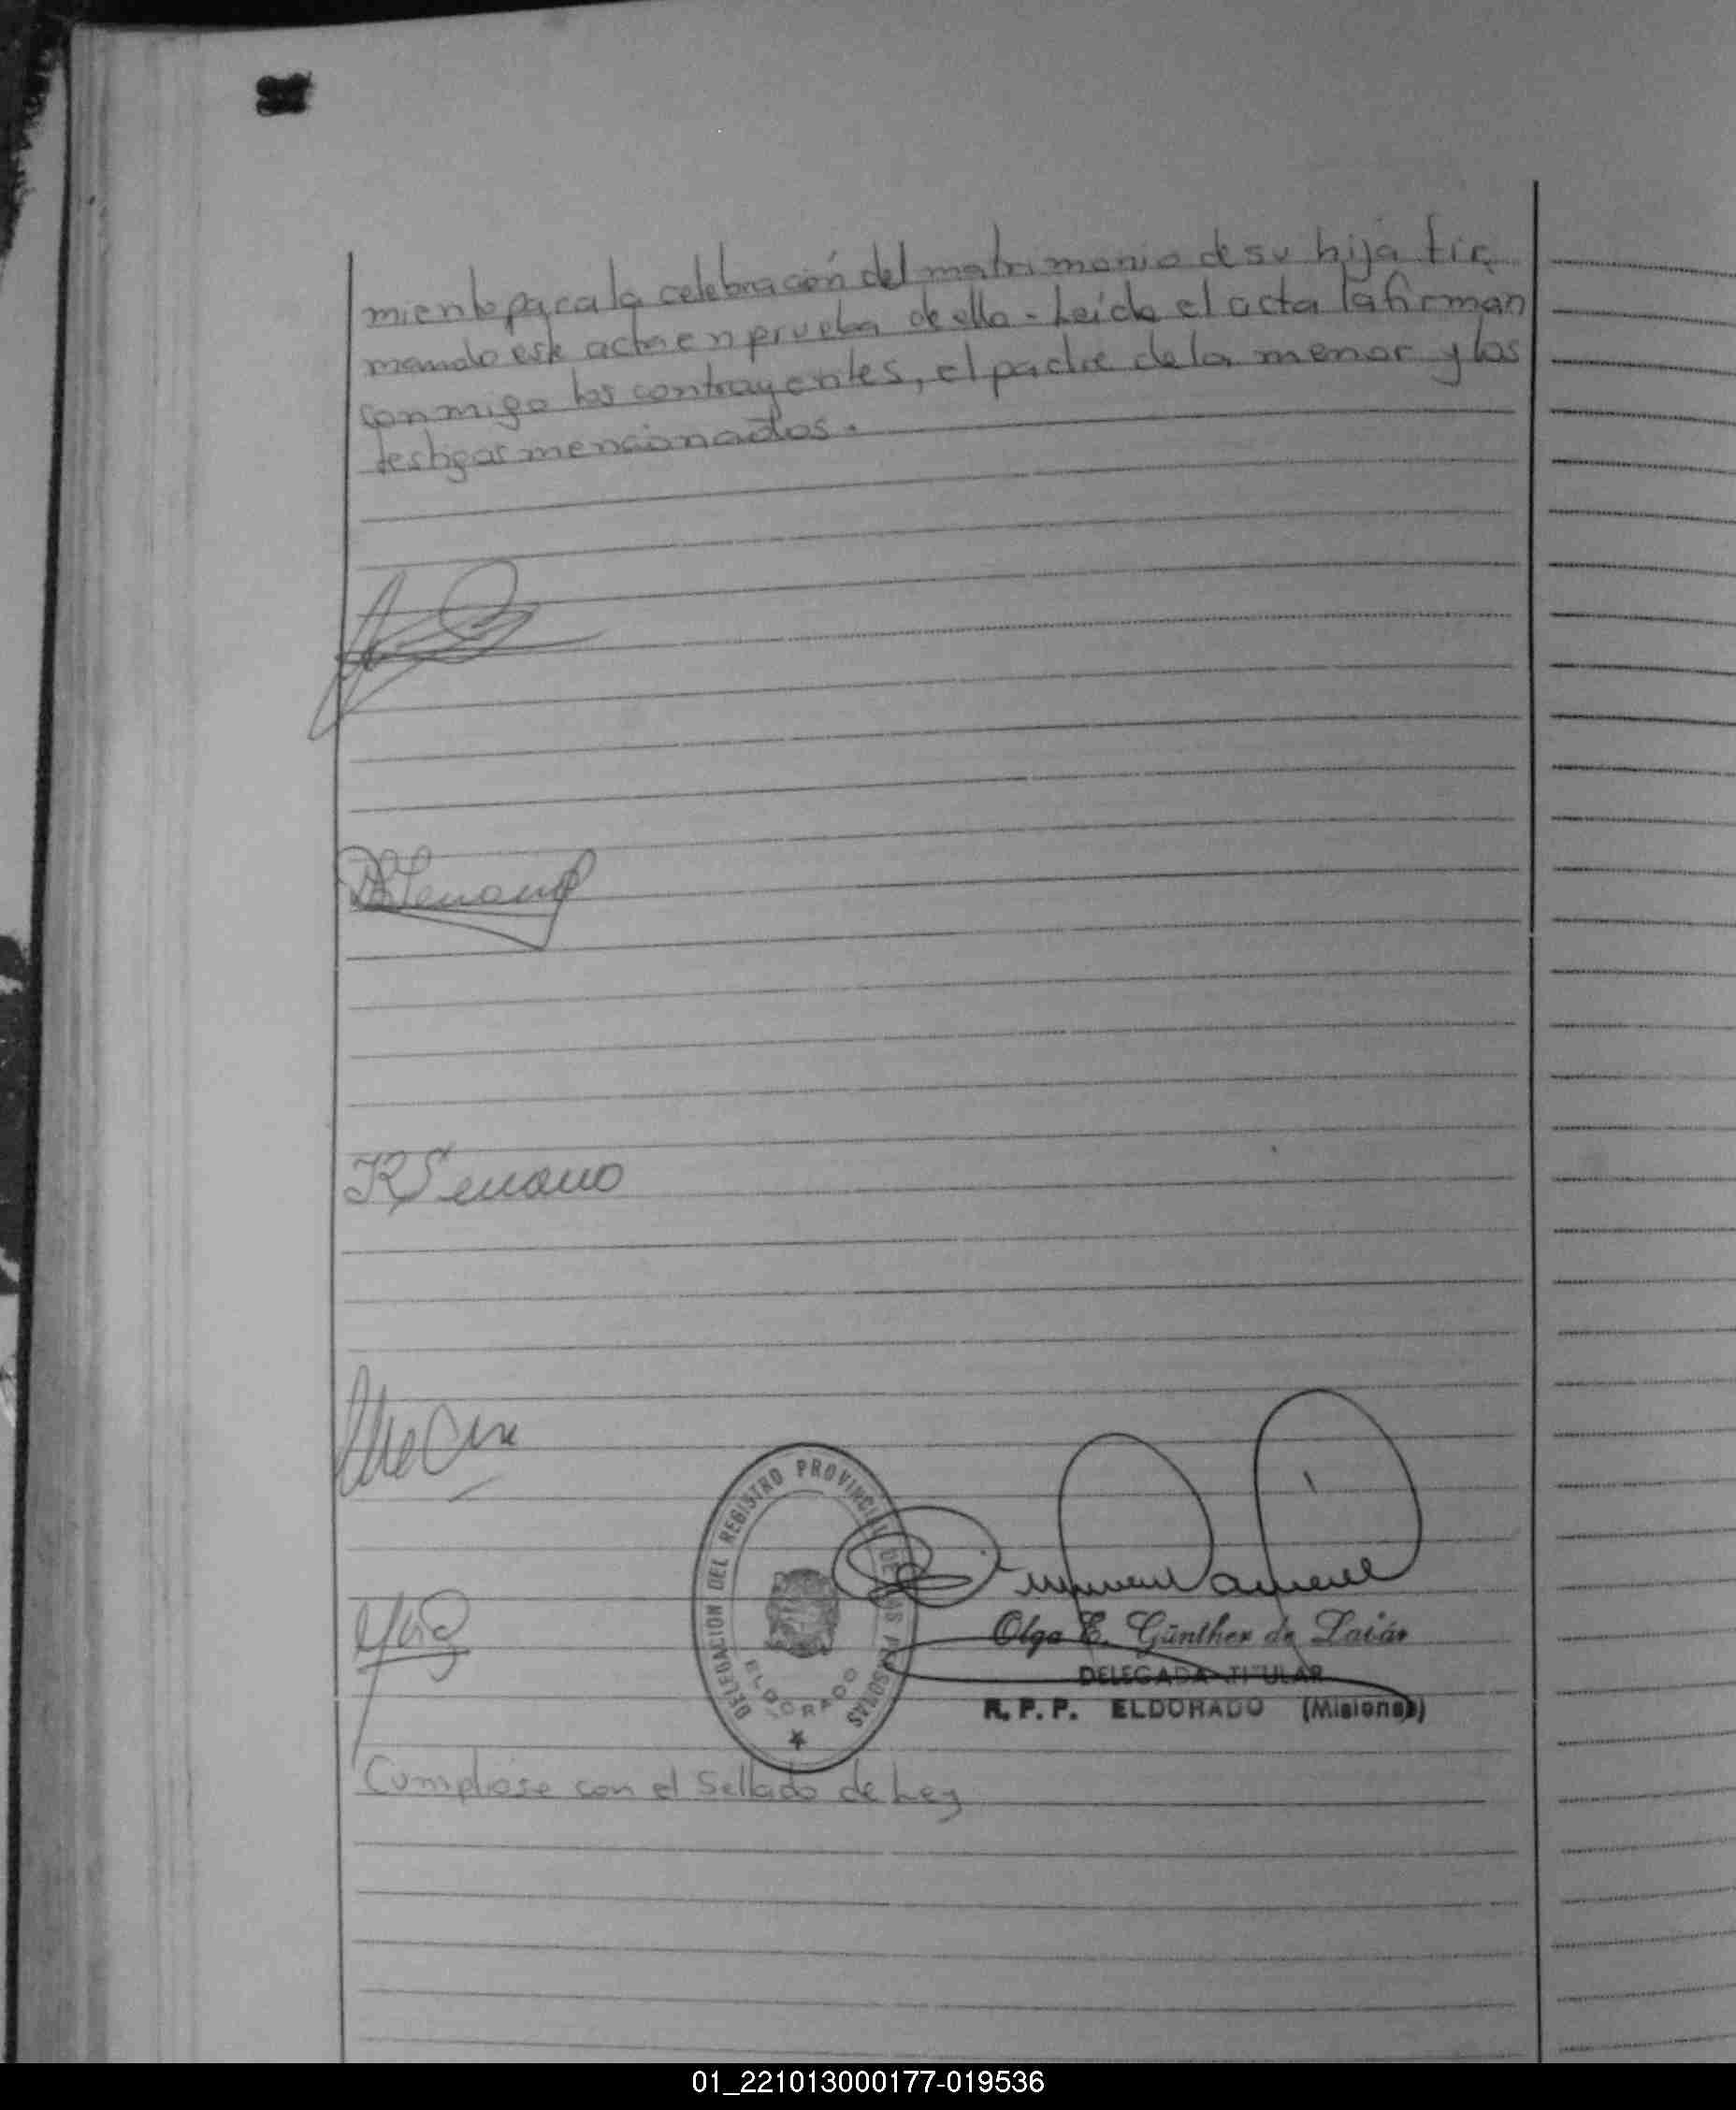 miento para la celebración del matrimonio de su hija fir
mando este acta en prueba de ello - Leída el acta la firman
conmigo los contrayentes, el padre de la menor y los
testigos mencionados.
DELEGACION DEL REGISTRO PROVINCIAL DE LAS PERSONAS
ELDORADO
Olga E. Günther de
DELEGADA TITULAR
R. P. P. ELDORADO (Misiones)
Cumpliose con el Sellado de Ley
01_221013000177-019536